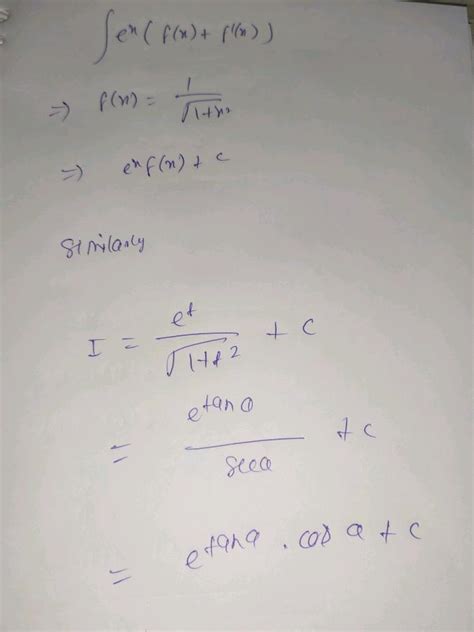 ∫ eˣ ( f(x) + f'(x) )
⇒ f(x) = 1/√(1+x²)
⇒ eˣ f(x) + c
Similarly
I = eᵗ/√(1+t²) + c
= e^(tan θ)/sec θ + c
= e^(tan θ) . cos θ + c